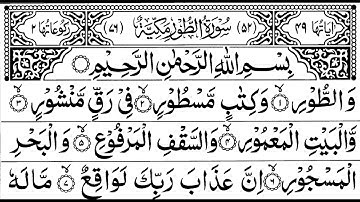 اٰیَاتُهَا ۴۹ (۵۲) سُوْرَةُ الطُّوْرِ مَكِّیَّةٌ (۷۶) رُكُوْعَاتُهَا ۲
بِسْمِ اللّٰهِ الرَّحْمٰنِ الرَّحِیْمِ
وَ الطُّوْرِ ۙ﴿۱﴾ وَ كِتٰبٍ مَّسْطُوْرٍ ۙ﴿۲﴾ فِیْ رَقٍّ مَّنْشُوْرٍ ۙ﴿۳﴾
وَّ الْبَیْتِ الْمَعْمُوْرِ ۙ﴿۴﴾ وَ السَّقْفِ الْمَرْفُوْعِ ۙ﴿۵﴾ وَ الْبَحْرِ
الْمَسْجُوْرِ ۙ﴿۶﴾ اِنَّ عَذَابَ رَبِّكَ لَوَاقِعٌ ۙ﴿۷﴾ مَّا لَهٗ